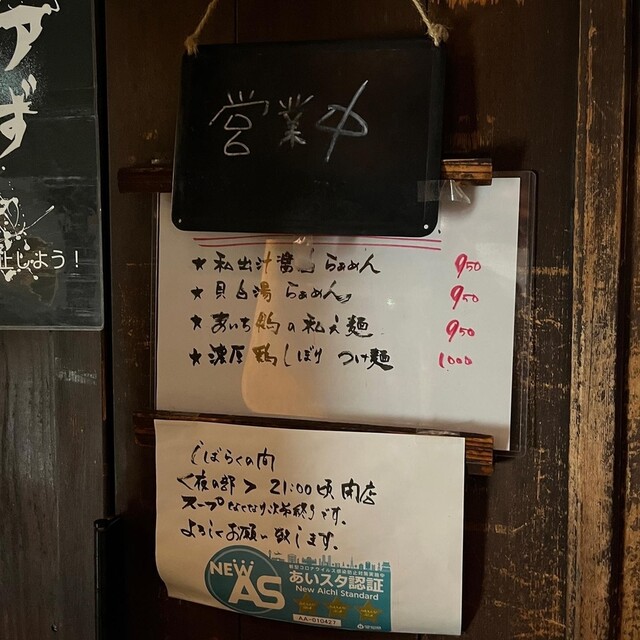 アず
止しよう!
営業中
★ 私出汁醤油らぁめん 950
★ 貝白湯 らぁめん 950
★ あいち鴨の 950
★ 濃厚鴨しぼり つけ麺 1000
しばらくの間
<夜の部> 21:00頃 閉店
スープなくなり次第終了です。
よろしくお願い致します。
新型コロナウイルス感染防止対策実施中
NEW AS
あいスタ認証
New Aichi Standard
AA-010427
愛知県